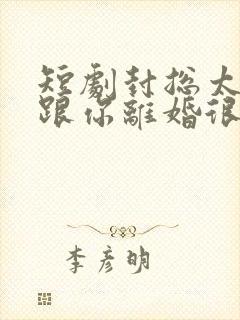 短劇封總太
跟你離婚很
李彥明